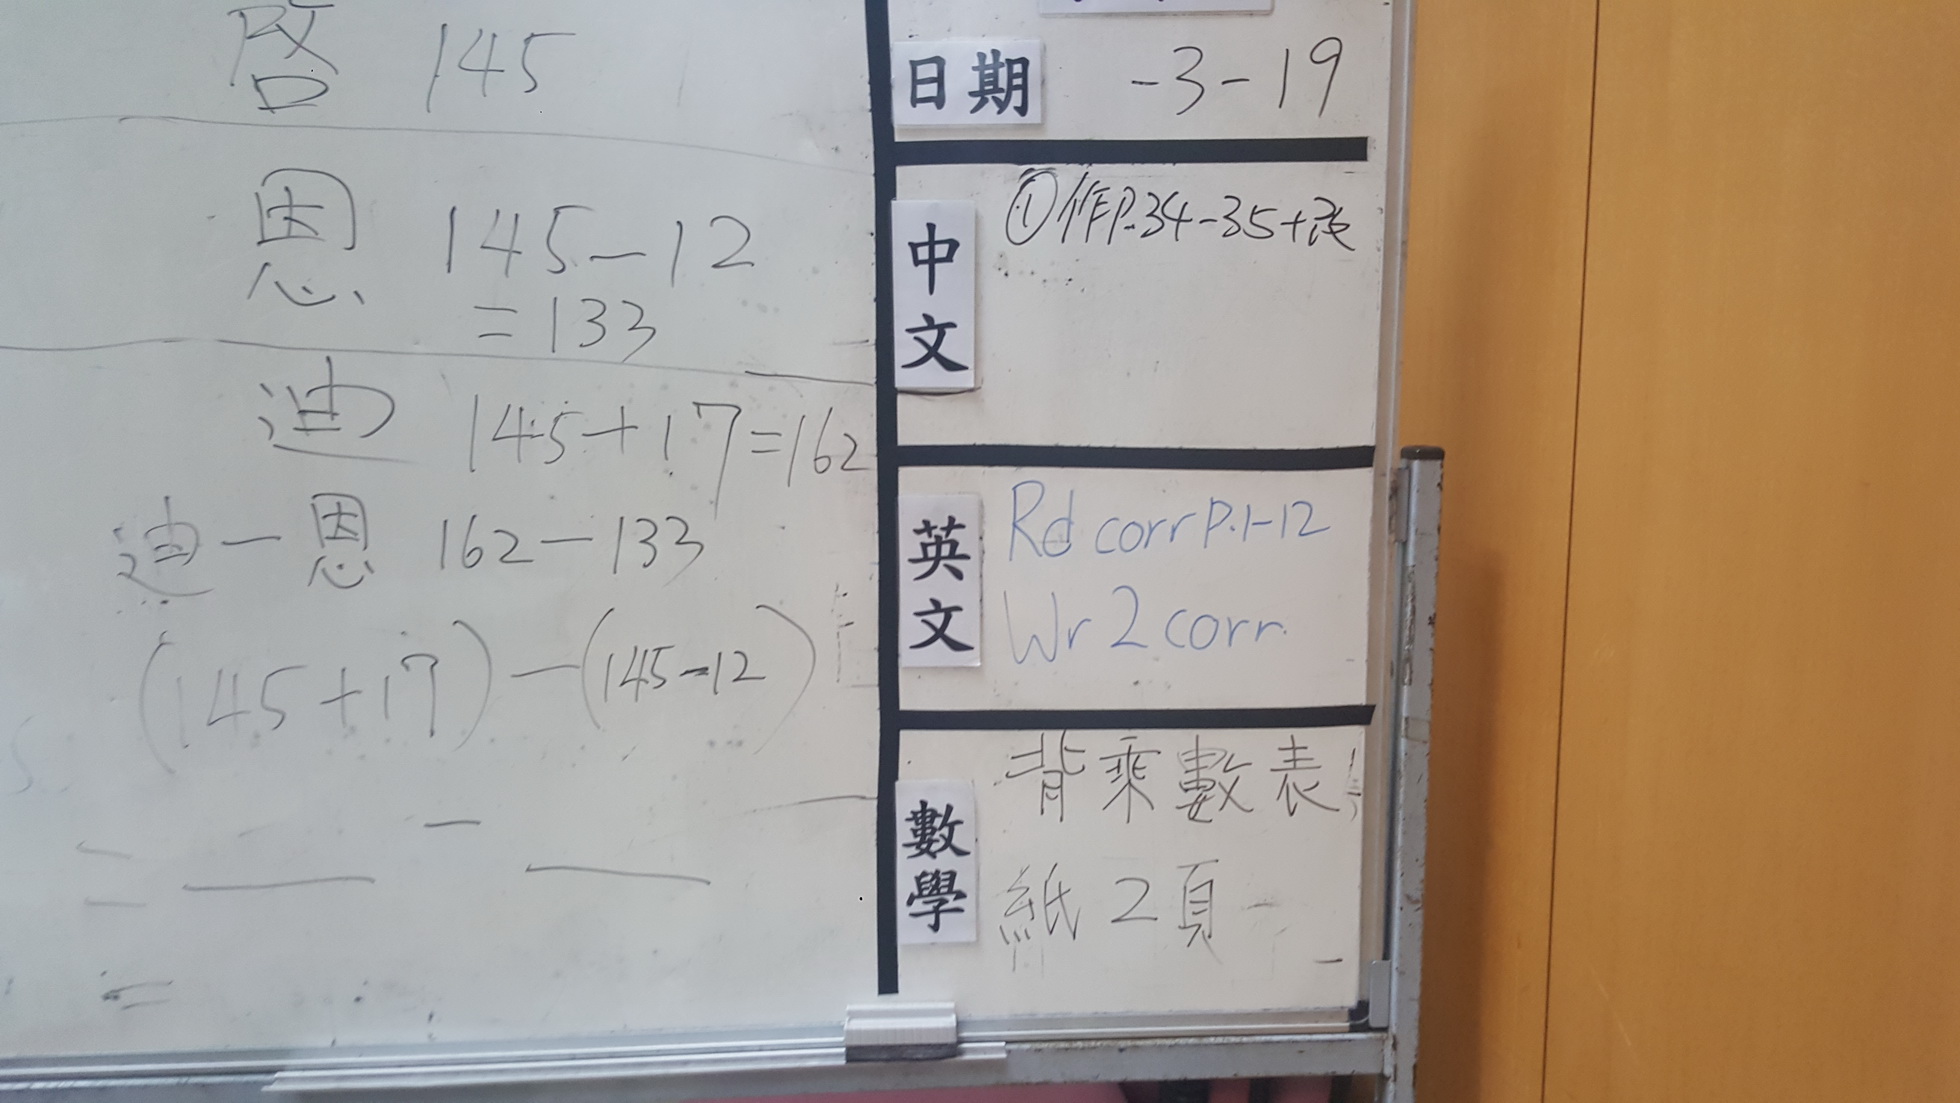 啓 145
恩 145-12
=133
迪 145+17=162
迪-恩 162-133
(145+17)-(145-12)
= ___ - ___
=
日期 -3-19
中文
①作P.34-35+改
英文
Rd corr P.1-12
Wr 2 corr.
數學
背乘數表
紙2頁